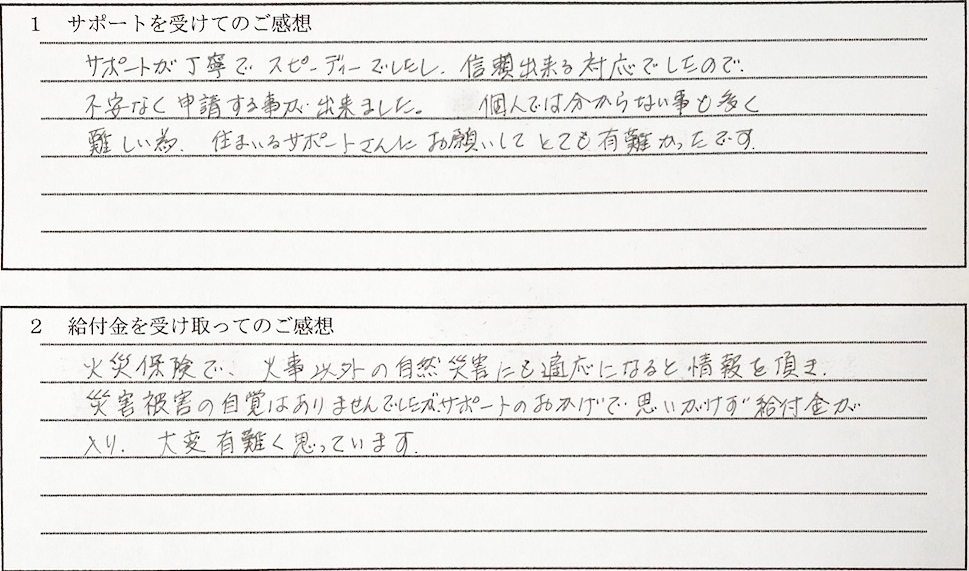 1 サポートを受けてのご感想
サポートが丁寧でスピーディーでしたし、信頼出来る対応でしたので、
不安なく申請する事が出来ました。 個人では分からない事も多く
難しい為、住まいるサポートさんにお願いしてとても有難かったです。
2 給付金を受け取ってのご感想
火災保険で、火事以外の自然災害にも適応になると情報を頂き、
災害被害の自覚はありませんでしたがサポートのおかげで思いがけず給付金が
入り、大変有難く思っています。